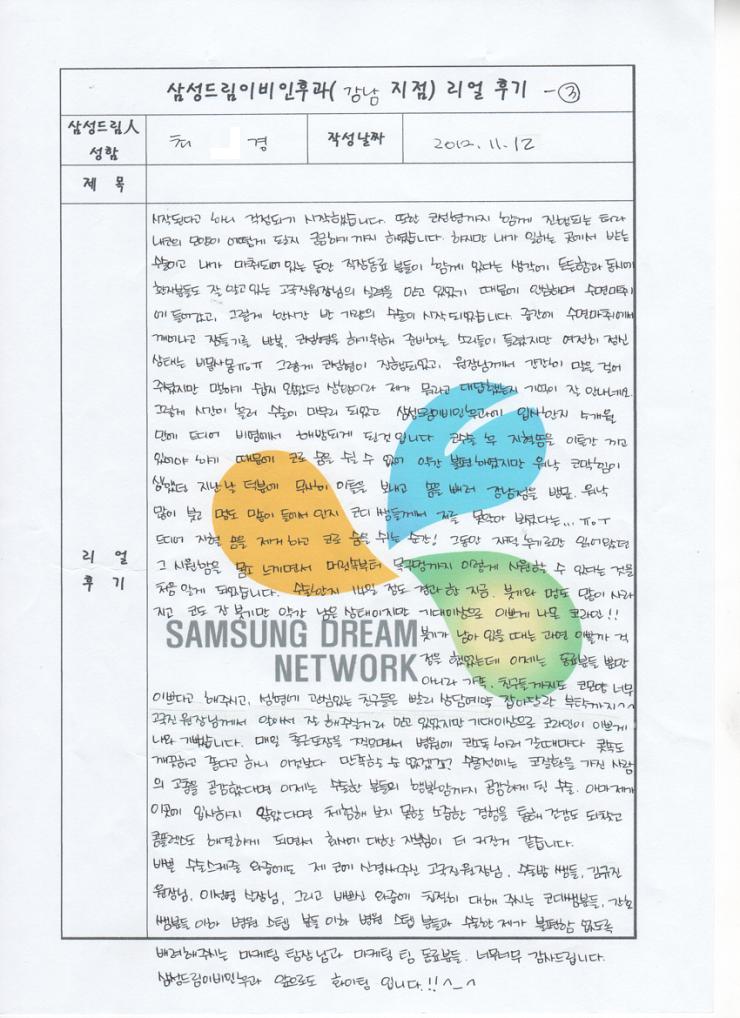 삼성드림이비인후과( 강남 지점) 리얼 후기 -③
삼성드림人
성함
최 경
작성날짜
2012. 11. 12
제 목
리 얼
후 기
시작된다고 하니 걱정되기 시작했습니다. 또한 코성형까지 함께 진행되는 터라
내코의 모양이 어떻게 될지 궁금하기까지 하였습니다. 하지만 내가 일하는 곳에서 받는
수술이고 내가 마취되어 있는 동안 직장동료 분들이 함께 있다는 생각에 든든함과 동시에
환자분들도 잘 알고 있는 고국진원장님의 실력을 믿고 있었기 때문에 안심하며 수면마취
에 들어갔고, 그렇게 한시간 반 가량의 수술이 시작 되었습니다. 중간에 수면마취에서
깨어나고 잠들기를 반복. 코성형을 하기위해 준비하는 소리들이 들렸지만 여전히 정신
상태는 비몽사몽ㅠ0ㅠ 그렇게 코성형이 진행되었고, 원장님께서 간간이 말을 걸어
주셨지만 말하기 쉽지 않았던 상황이라 제가 뭐라고 대답했는지 기억이 잘 안나네요.
그렇게 시간이 흘러 수술이 마무리 되었고 삼성드림이비인후과에 입사한지 4개월
만에 드디어 비염에서 해방되게 된것입니다 코수술 후 지혈솜을 이틀간 끼고
있어야 하기 때문에 코로 숨을 쉴 수 없어 약간 불편하였지만 워낙 코막힘이
심했던 지난날 덕분에 무사히 이틀을 보내고 솜을 빼러 강남점을 방문. 워낙
많이 붓고 멍도 많이 들어서 인지 코디 쌤들께서 저를 못알아 보셨다는... ㅠ0ㅜ
드디어 지혈 솜을 제거 하고 코로 숨을 쉬는 순간! 그동안 자적 누게로만 읽어왔던
그 시원함을 몸소 느끼면서 머릿속부터 목구멍까지 이렇게 시원할 수 있다는 것을
처음 알게 되었습니다. 수술한지 14일 정도 경과한 지금. 붓기와 멍도 많이 사라
지고 코도 잔 붓기만 약간 남은 상태이지만 기대이상으로 이쁘게 나온 코라인!!
붓기가 남아 있을 때는 과연 이쁠까 걱
정을 했었는데 이제는 동료분들 뿐만
아니라 가족, 친구들까지도 코모양 너무
이쁘다고 해주시고, 성형에 관심있는 친구들은 빨리 상담예약 잡아달라 부탁까지^^
고국진 원장님께서 알아서 잘 해주실거라 믿고 있었지만 기대이상으로 코라인이 이쁘게
나와 기뻤습니다. 매일 출근도장을 찍으면서 병원에 코소독 하러 갈때마다 콧속도
깨끗하고 좋다고 하니 이것보다 만족할 순 없겠죠? 수술전에는 코질환을 가진 사람
의 고통을 공감했다면 이제는 수술한 분들의 행복함까지 공감하게 된 수술. 아마 제가
이곳에 입사하지 않았다면 체험해 보지 못할 소중한 경험을 통해 건강도 되찾고
콤플렉스도 해결하게 되면서 회사에 대한 자부심이 더 커진거 같습니다.
바쁜 수술스케줄 와중에도 제 코에 신경써주신 고국진원장님, 수술방 쌤들, 김국진
원장님, 이성영 실장님, 그리고 바쁘신 와중에 친절히 대해 주시는 코디쌤분들, 간호
쌤분들 이하 병원 스텝 분들 이하 병원 스텝 분들과 수술한 제가 불편함 없도록
배려해주시는 마케팅 팀장님과 마케팅 팀 동료분들. 너무너무 감사드립니다.
삼성드림이비인후과 앞으로도 화이팅 입니다.!!^_^
SAMSUNG DREAM
NETWORK